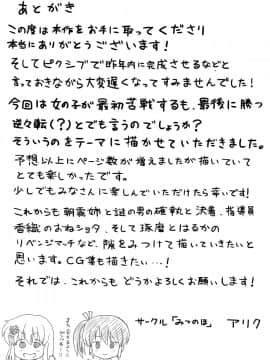 あとがき
この度は本作をお手に取ってくださり
本当にありがとうございます!
そしてピクシブで昨年内に完成させるなどと
言っておきながら大変遅くなってすみませんでした!
今回は女の子が最初苦戦するも、最後に勝つ
逆々転(?)とでも言うのでしょうか?
そういうのをテーマに描かせていただきました。
予想以上にページ数が増えましたが描いていて
とても楽しかったです。
少しでもみなさんに楽しんでいただけたら幸いです!
これからも朝霧姉と謎の男の確執と決着、指導員
香織のおねショタ、そして琢磨とはるかの
リベンジマッチなど、隙をみつけて描いていきたいと
思います。CG集も描きたい…!
それでは、これからもどうかよろしくお願いします!
サークル「みつのほ」 アリク